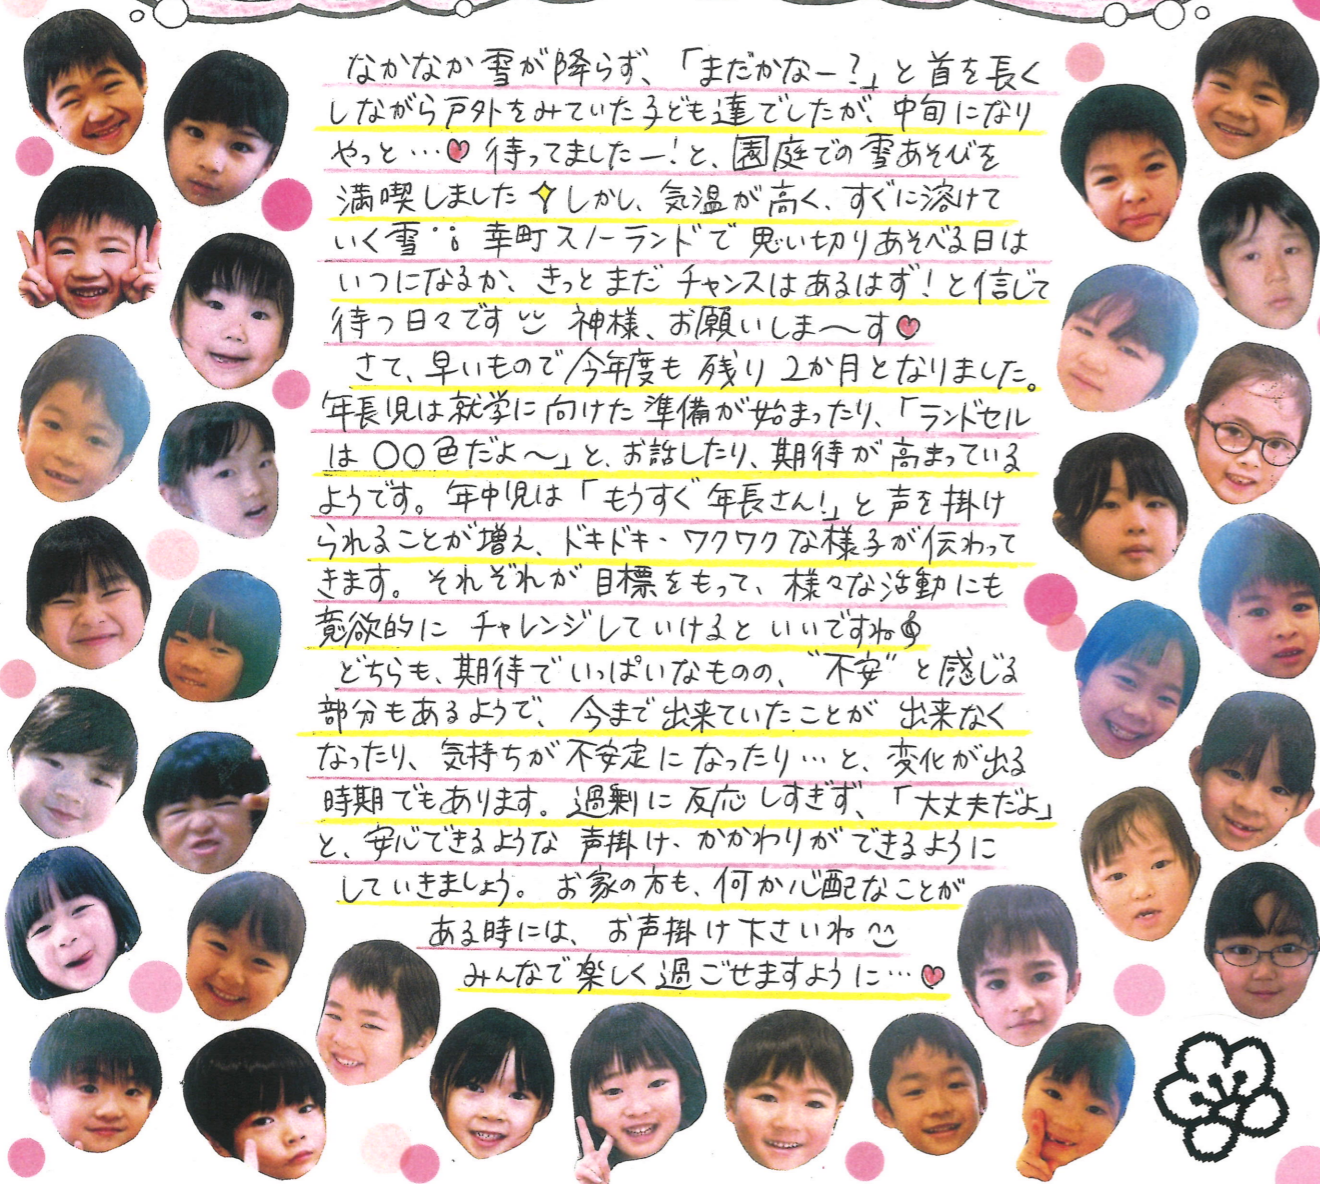 なかなか雪が降らず、「まだかなー?」と首を長く
しながら戸外をみていた子ども達でしたが、中旬になり
やっと…♥ 待ってましたー!と、園庭での雪あそびを
満喫しました✧しかし、気温が高く、すぐに溶けて
いく雪… 幸町スノーランドで思い切りあそべる日は
いつになるか、きっとまだチャンスはあるはず!と信じて
待つ日々です 神様、お願いしま〜す♥
さて、早いもので今年度も残り2か月となりました。
年長児は就学に向けた準備が始まったり、「ランドセル
は〇〇色だよ〜」と、お話したり、期待が高まっている
ようです。年中児は「もうすぐ年長さん!」と声を掛け
られることが増え、ドキドキ・ワクワクな様子が伝わって
きます。それぞれが目標をもって、様々な活動にも
意欲的にチャレンジしていけるといいですね
どちらも、期待でいっぱいなものの、"不安"と感じる
部分もあるようで、今まで出来ていたことが出来なく
なったり、気持ちが不安定になったり…と、変化が出る
時期でもあります。過剰に反応しすぎず、「大丈夫だよ」
と、安心できるような声掛け、かかわりができるように
していきましょう。お家の方も、何か心配なことが
ある時には、お声掛け下さいね
みんなで楽しく過ごせますように…♥